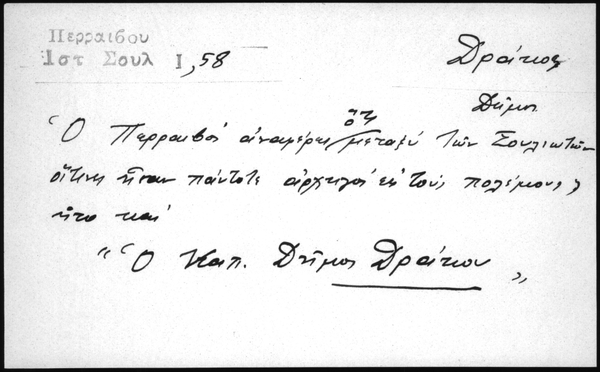 Περραιβου
Ιστ Σουλ Ι, 58
Δράκος
Δῆμος
Ὁ Περραιβὸς ἀναφέρει ὅτι μεταξὺ τῶν Σουλιωτῶν
οἵτινες ἦσαν πάντοτε ἀρχηγοί εἰς τοὺς πολέμους,
ἦτο καὶ
"Ὁ Καπ. Δῆμος Δράκου"